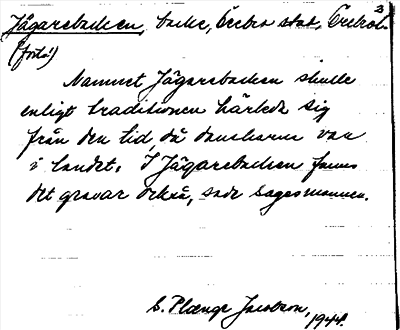 3
Jägarebacken, backe, Örebro stad, Örebro l.
(forts!)
Namnet Jägarebacken skulle
enligt traditionen härleda sig
från den tid, då danskarna var
i landet. I Jägarebacken fanns
det gravar också, sade sagesmannen.
S. Plænge Jacobson,
1944.